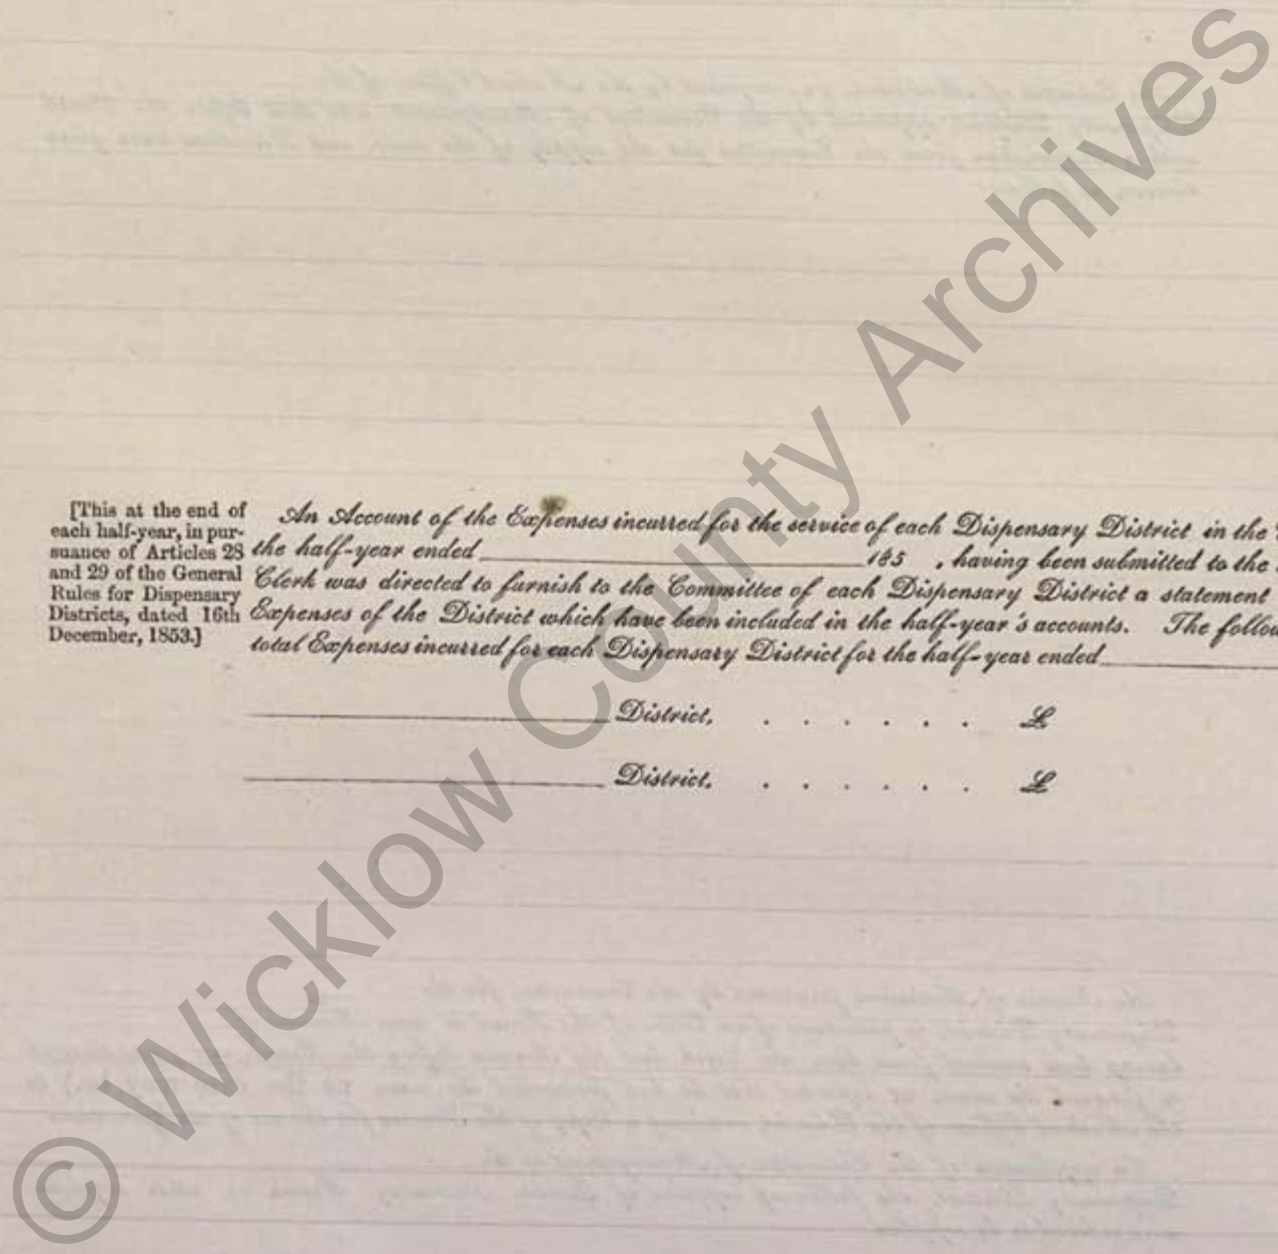 [This at the end of
each half-year, in pur-
suance of Articles 28
and 29 of the General
Rules for Dispensary
Districts, dated 16th
December, 1853.]
An Account of the Expenses incurred for the service of each Dispensary District in the
the half-year ended 185 , having been submitted to the
Clerk was directed to furnish to the Committee of each Dispensary District a statement
Expenses of the District which have been included in the half-year's accounts. The follow
total Expenses incurred for each Dispensary District for the half-year ended
District, . . . . . . £
District, . . . . . . £
© Wicklow County Archives